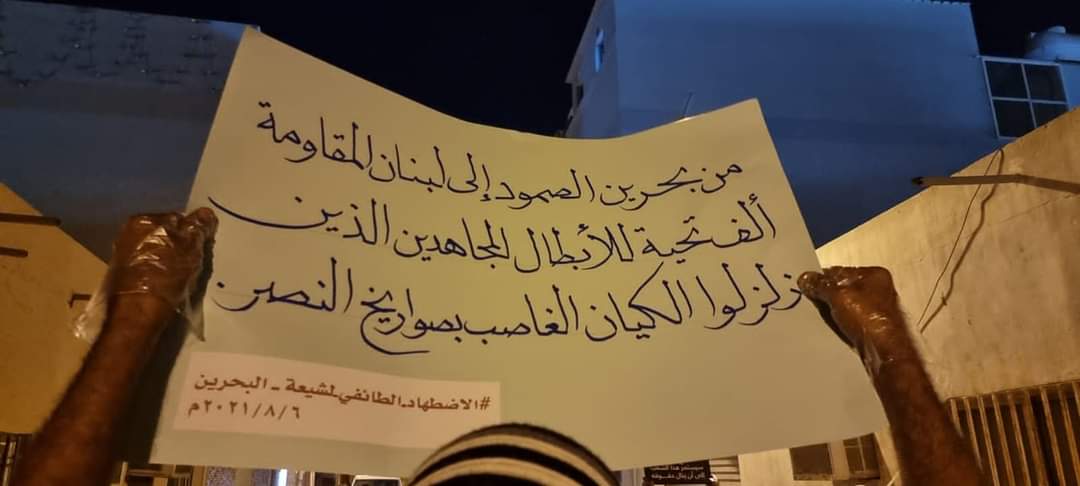 من بحرين الصمود إلى لبنان المقاومة
ألف تحية للأبطال المجاهدين الذين
زلزلوا الكيان الغاصب بصواريخ النصر
#الاضطهاد_الطائفي_لشيعة_البحرين
٢٠٢١/٨/٦م